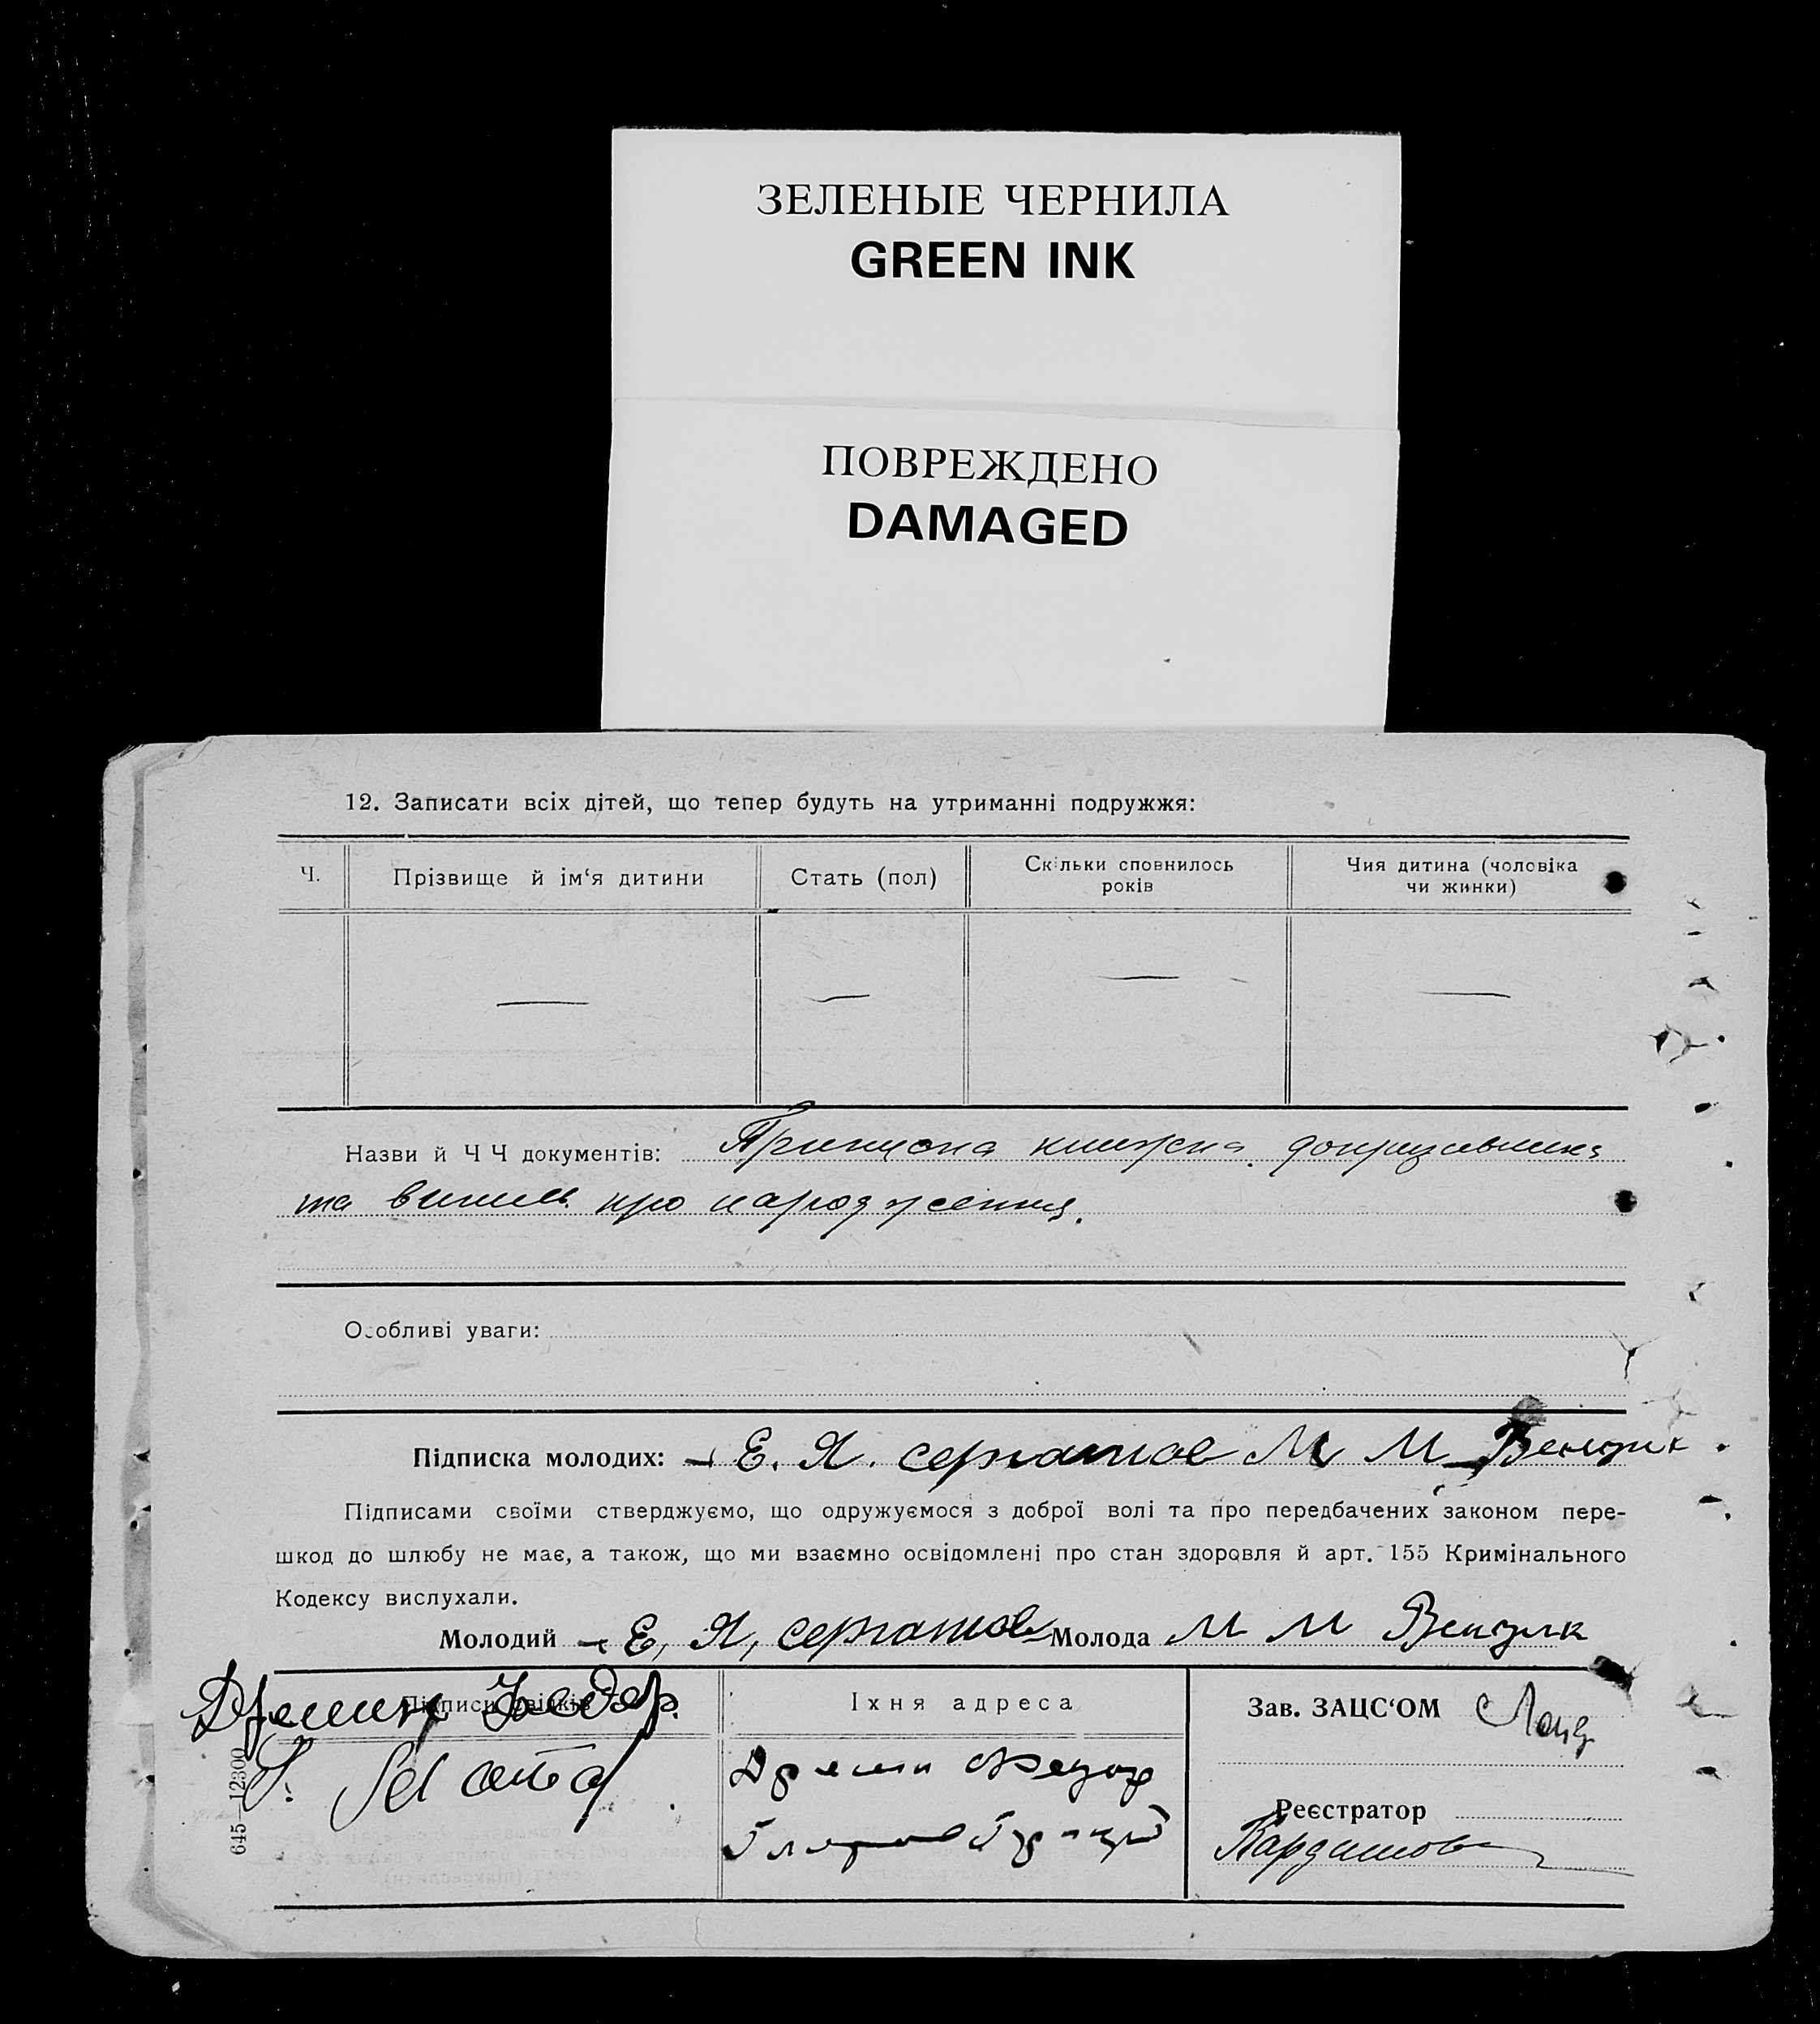 ЗЕЛЕНЫЕ ЧЕРНИЛА
GREEN INK
ПОВРЕЖДЕНО
DAMAGED
12. Записати всіх дітей, що тепер будуть на утриманні подружжя:
Ч.
Прізвище й ім‘я дитини
Стать (пол)
Скільки сповнилось
років
Чия дитина (чоловіка
чи жинки)
Назви й Ч Ч документів: Приписна книжка допризивника
та випись про народження.
Особливі уваги:
Підписка молодих: Е. Я. М М
Підписами своїми стверджуємо, що одружуємося з доброї волі та про передбачених законом пере-
шкод до шлюбу не має, а також, що ми взаємно освідомлені про стан здоровля й арт. 155 Кримінального
Кодексу вислухали.
Молодий Е. Я. Молода М М
Підписи свідків
Їхня адреса
Зав. ЗАЦС‘ОМ
Реєстратор
645—12300